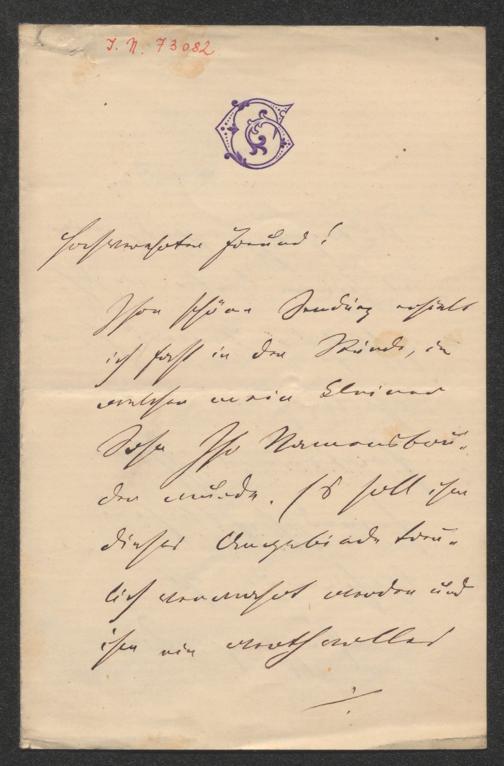 I. N. 73082
Hochverehrter Freund!
Ihre schöne Sendung erhielt
ich fast in der Stunde, in
welcher mein kleiner
Sohn Ihr Namensbru-
der wurde. Es soll ihm
dieses Angebinde treu-
lich verwahrt werden und
ihm ein werthvolles
./.